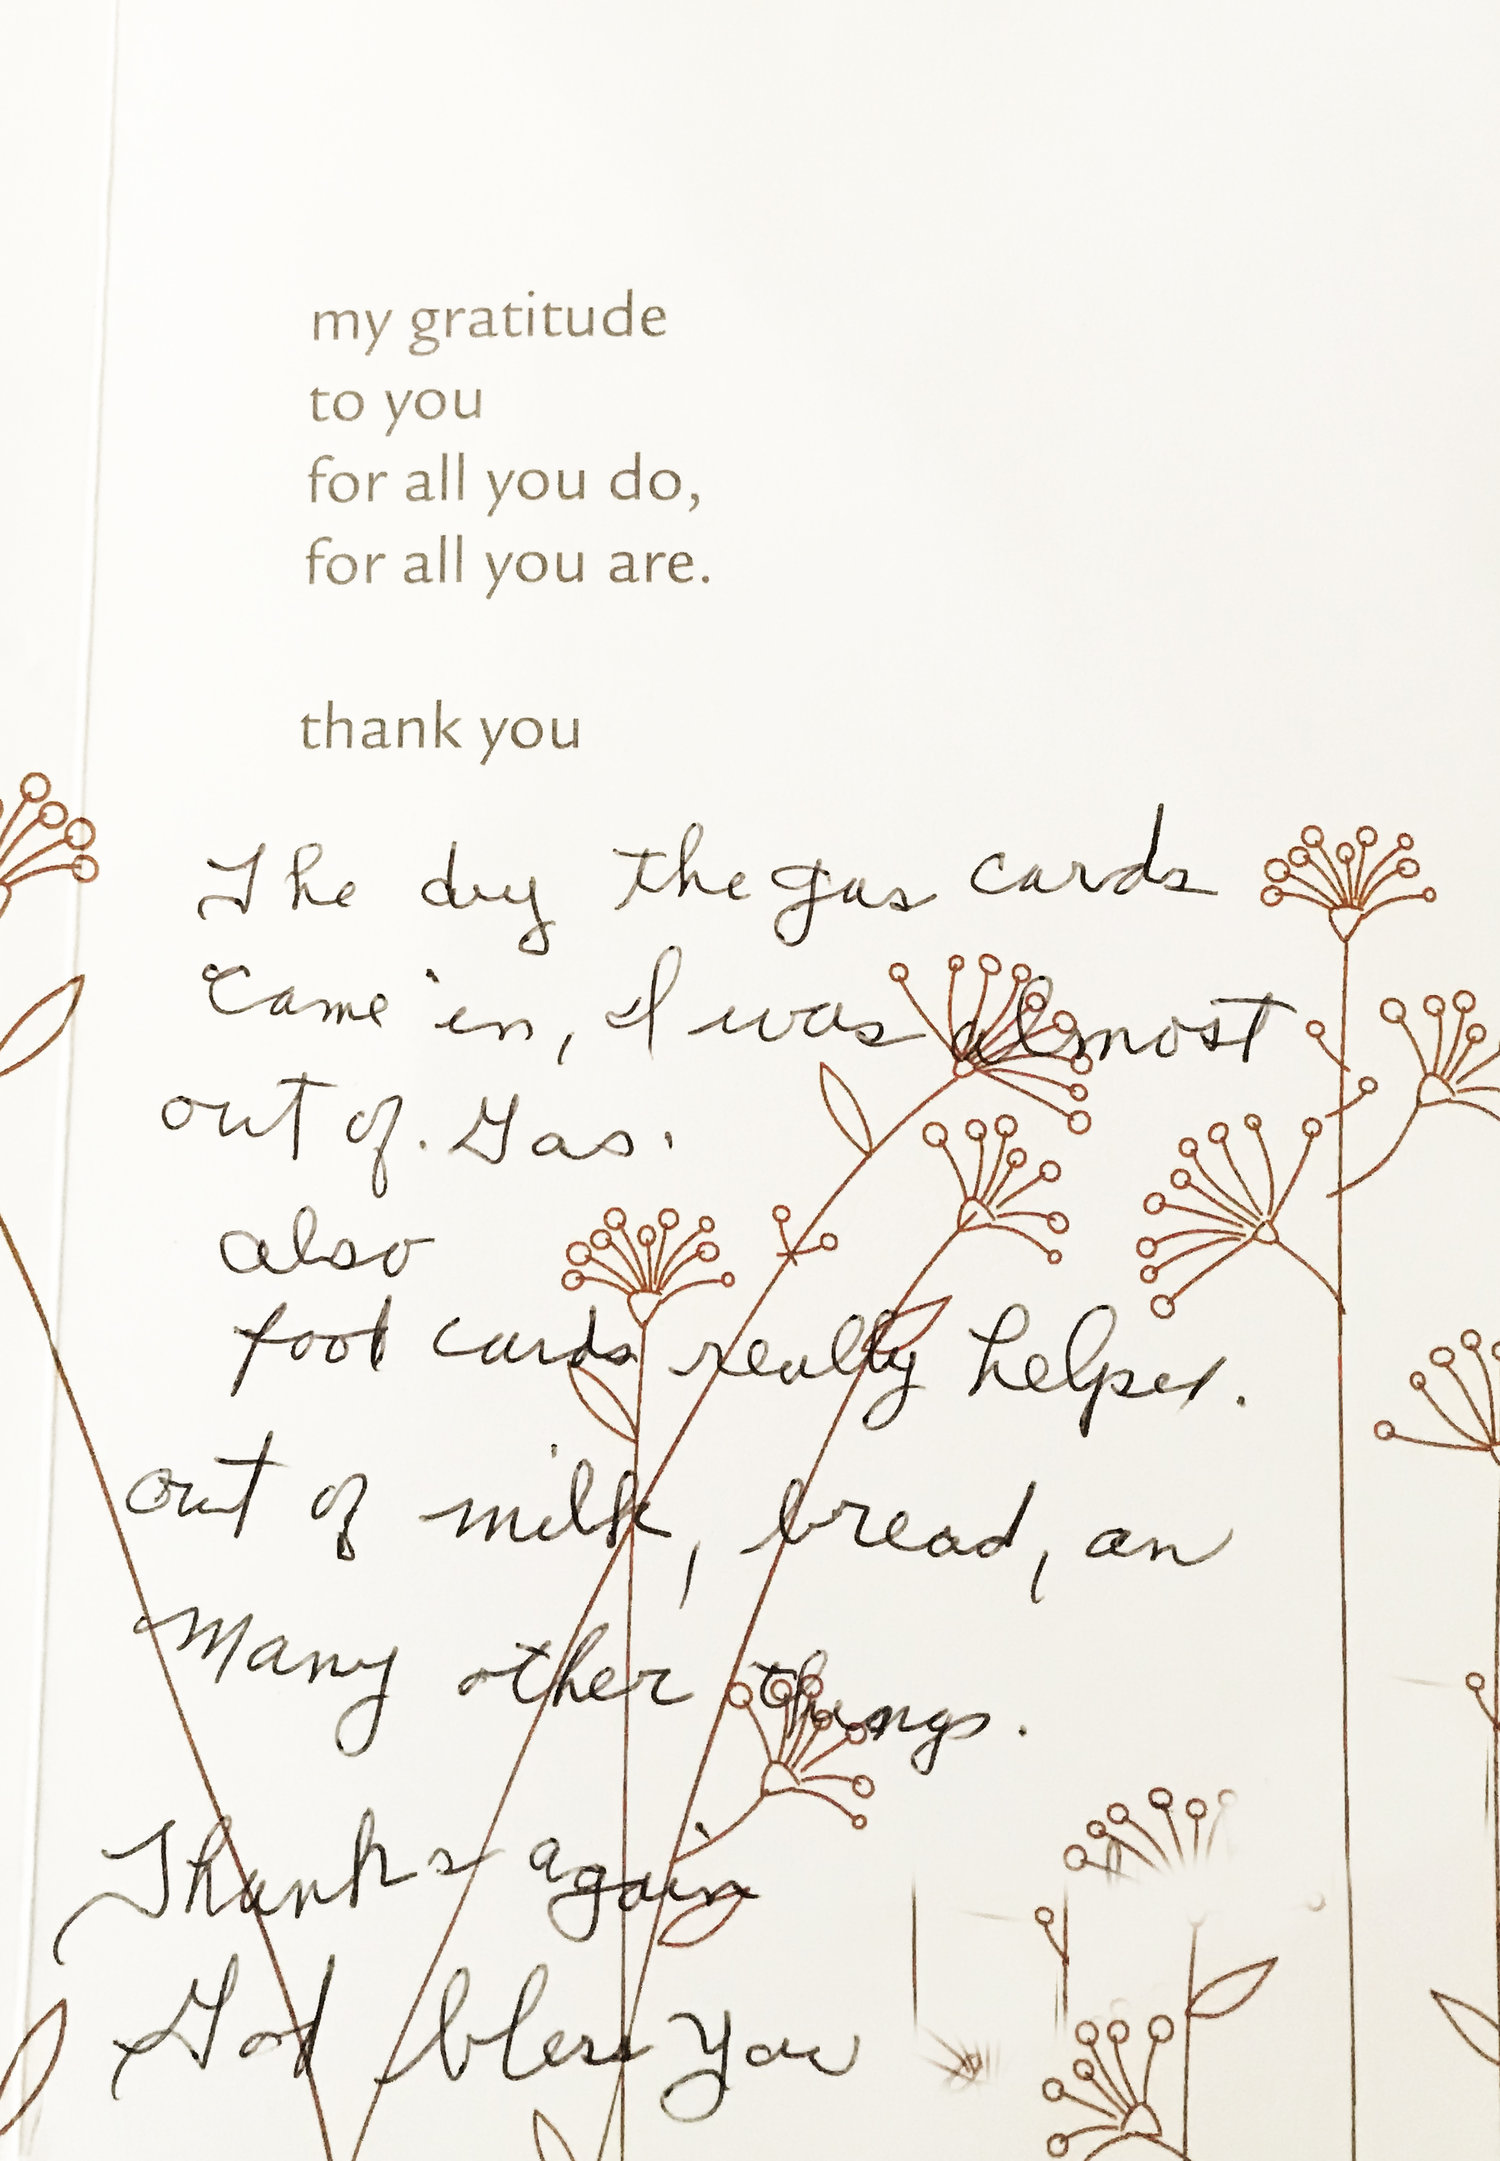 my gratitude
to you
for all you do,
for all you are.
thank you
The day the gas cards
Came in, I was almost
out of. Gas.
also
food cards really helped.
out of milk, bread, an
Many other things.
Thanks again
God bless You